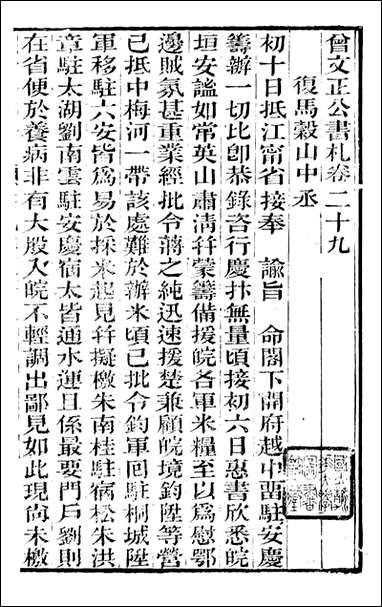 曾文正公書札卷二十九
復馬穀山中丞
初十日抵江甯省接奉　諭旨　命閣下開府越中畱駐安慶
籌辦一切比卽恭錄咨行慶抃無量頃接初六日惠書欣悉皖
垣安謐如常英山肅清幷蒙籌備援皖各軍米糧至以爲慰鄂
邊賊氛甚重業經批令蔣之純迅速援楚兼顧皖境鈞陞等營
已抵中梅河一帶該處難於辦米頃已批令鈞軍回駐桐城陞
軍移駐六安皆爲易於採米起見幷擬檄朱南桂駐宿松朱洪
章駐太湖劉南雲駐安慶宿太皆通水運且係最要門戶劉則
在省便於養病非有大股入皖不輕調出鄙見如此現尙未檄